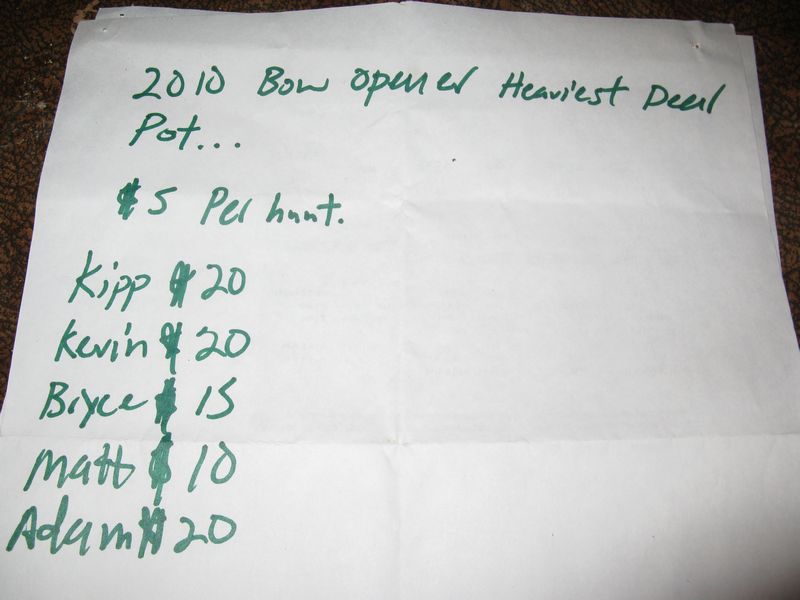 2010 Bow opener Heaviest Deer
Pot...
$5 Per hunt.
Kipp $20
Kevin $20
Bryce $15
Matt $10
Adam $20